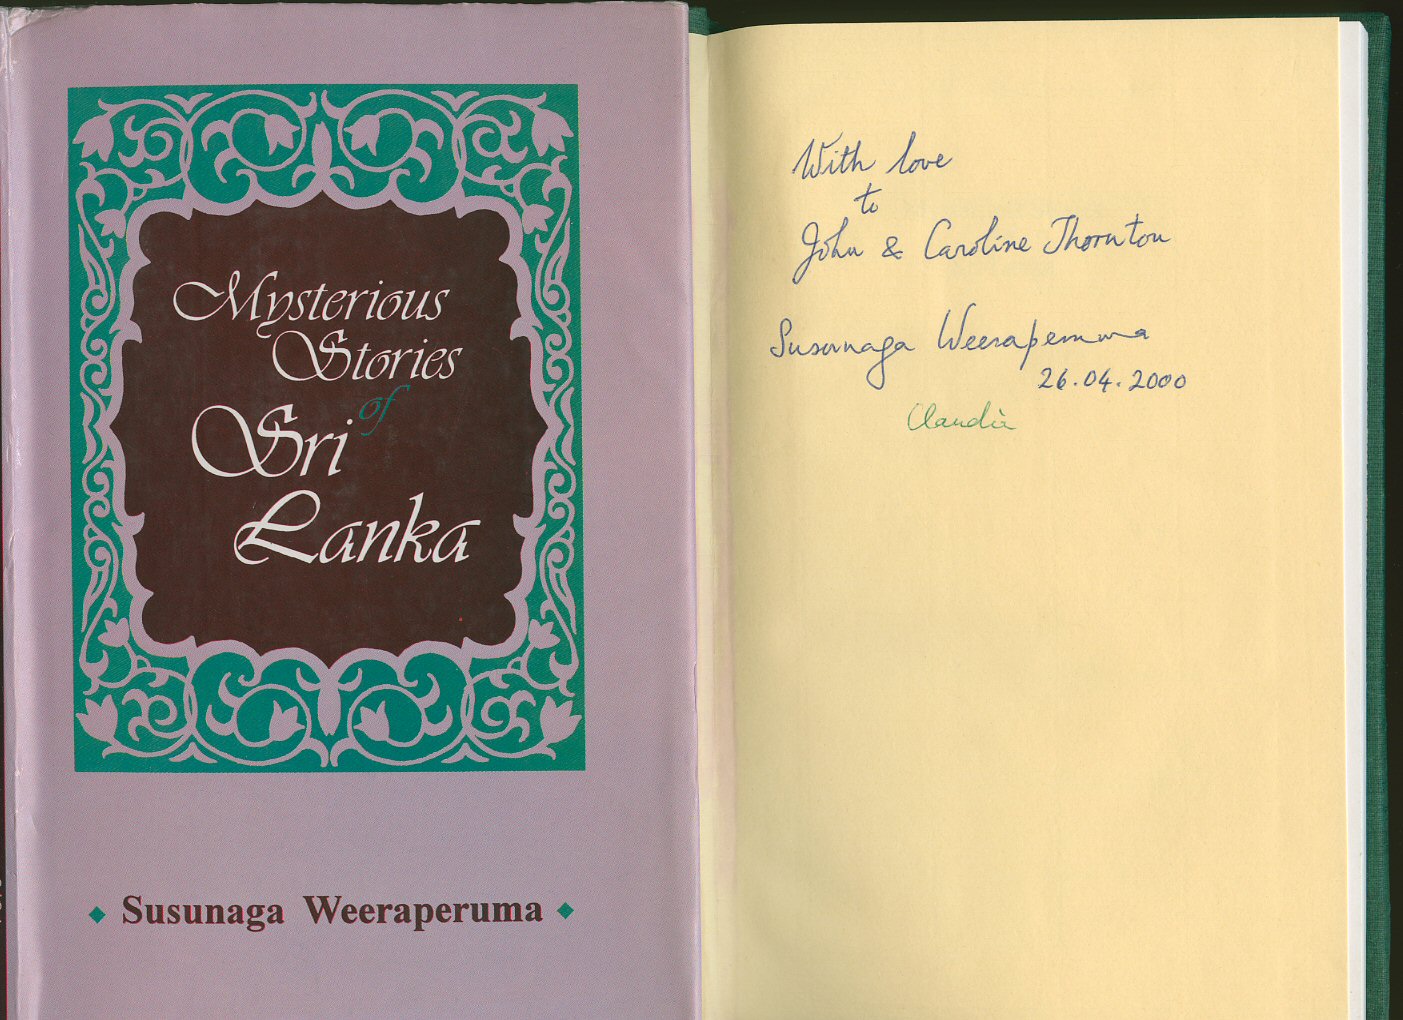 Mysterious
Stories
of
Sri
Lanka
Susunaga Weeraperuma
With love
to
John & Caroline Thornton
Susunaga Weeraperuma
26.04.2000
Claudia